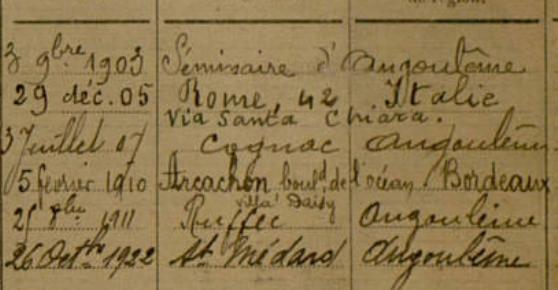 de région.
3 9bre 1903 Séminaire d'Angoulême
29 déc. 05 Rome, 42 Italie
Via Santa Chiara.
3 Juillet 07 Cognac Angoulême.
5 février 1910 Arcachon boulᵈ de l'océan. Bordeaux
villa Daisy
21 8bre 1911 Ruffec Angoulême
26 Octbre 1922 St Médard Angoulême